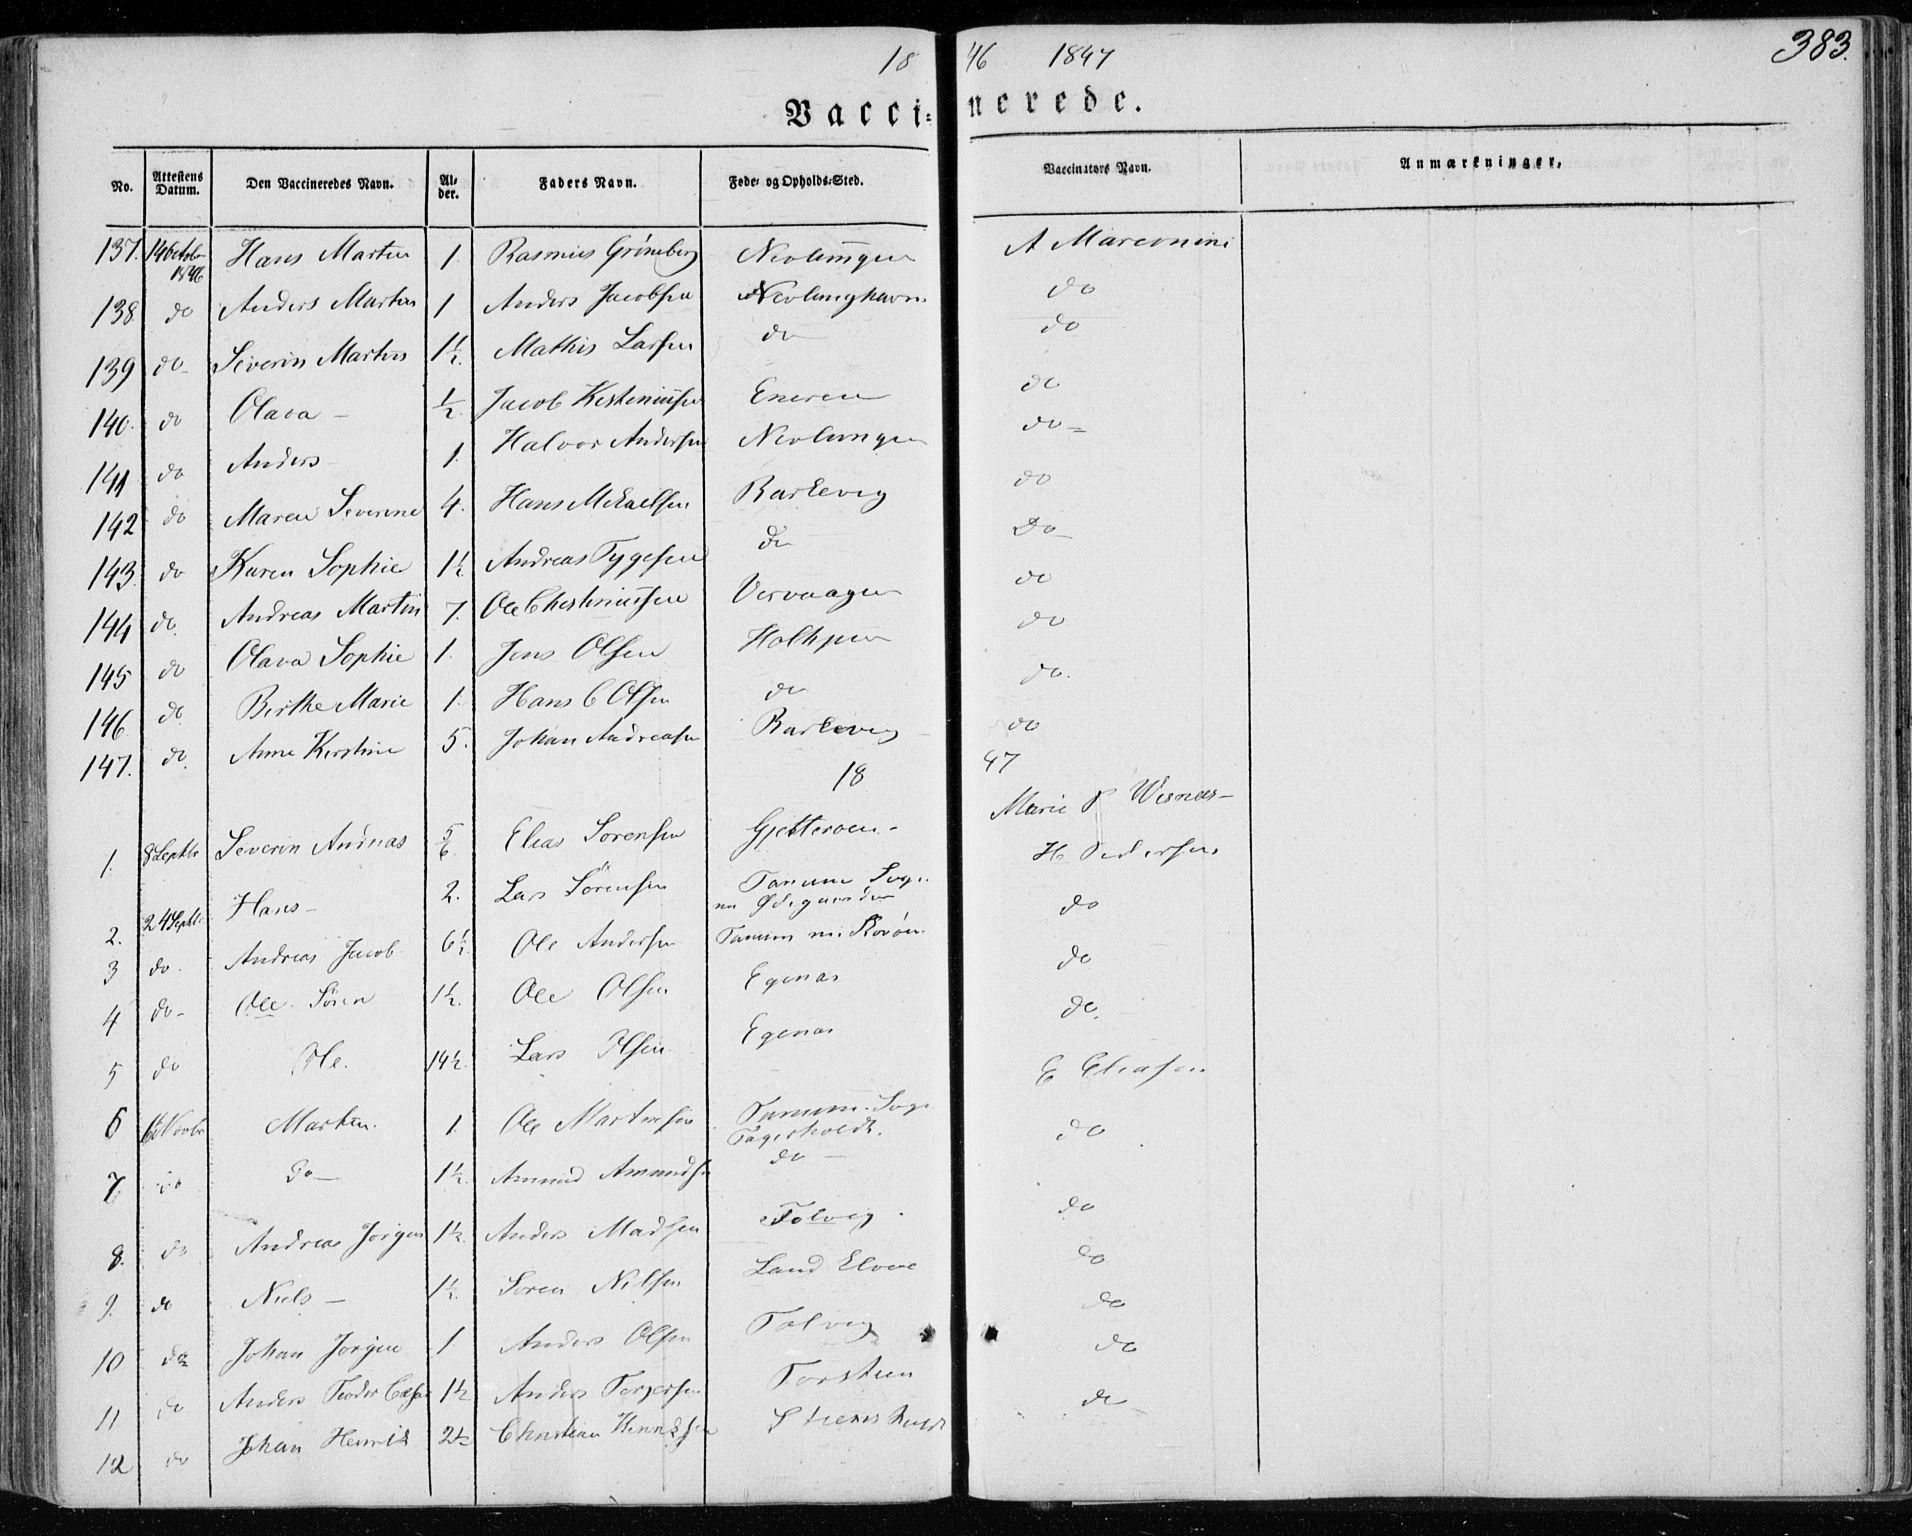 18 46 1847 383.
Vacci= nerede.
No. Attestens Datum. Den Vaccineredes Navn. Al=der. Faders Navn. Føde= og Opholds=Sted. Vaccinators Navn. Anmærkninger.
137. 14 Octobr 1846 Hans Martin 1. Rasmus Grøneberg Nevlungen A Marconini
138 do Anders Martin 1 Anders Jacobsen Nevlunghavn do
139 do Severin Martin 1½. Mathis Larsen do do
140. do Olava – ½ Jacob Kisteniusen Eneren do
141 do Anders 1. Halvor Andersen Nevlungen do
142 do Maren Severine 4. Hans Mikaelsen Barkevig do
143. do Karen Sophie 1½. Andreas Tygesen do Do
144 do. Andreas Martin 7. Ole Chisteniusen Vervaagen do
145 do Olava Sophie 1. Jens Olsen Holtsjen do
146 do Birthe Marie 1. Hans C Olsen do do.
147. do. Anne Kirstine 5. Johan Andreasen Barkevig do
18 47
1. 8 Septbr Severin Andreas 5/6 Elias Sørensen Gjetteroen. Marie P Wesnæs
2. 24 Septbr Hans – 2. Lars Sörensen Tanum Sogn Ødegaarden H Pedersen
3 do. Andreas Jacob 6½ Ole Andersen Tanum do
4 do Ole Sören 1½. Ole Olsen Egenæs do
5 do Ole. 14½. Lars Olsen Egenæs do.
6 Novbr Martin. 1 Ole Martinsen Tanum Sogn Fagerholdt. E Eliasen
7 do Do 1½. Amund Amundsen do do
8. do Andreas Jorgen 1½. Anders Madsen Folvig do
9. do Niels – 1½. Soren Nilsen Land Elvene do
10 do Johan Jorgen 1 Anders Olsen Folvig do
11 do Anders 1½ Anders Torgersen Torstun do
12 do Johan Henrik 2½ Christian Henriksen do